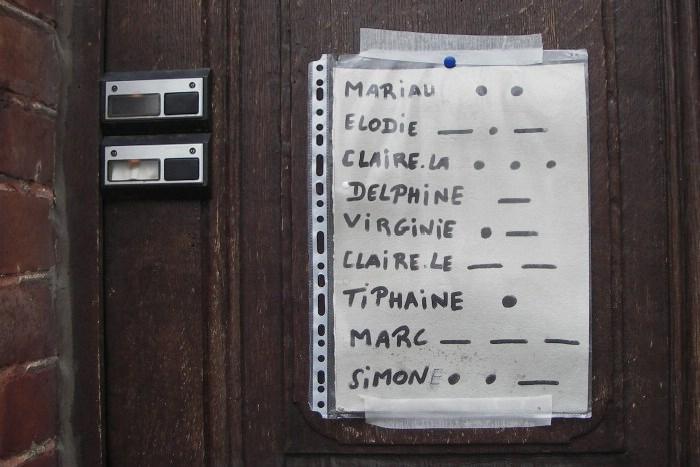 MARIAU • •
ELODIE — • —
CLAIRE.LA • • •
DELPHINE —
VIRGINIE • —
CLAIRE.LE — —
TIPHAINE •
MARC — — —
SIMONE • • —